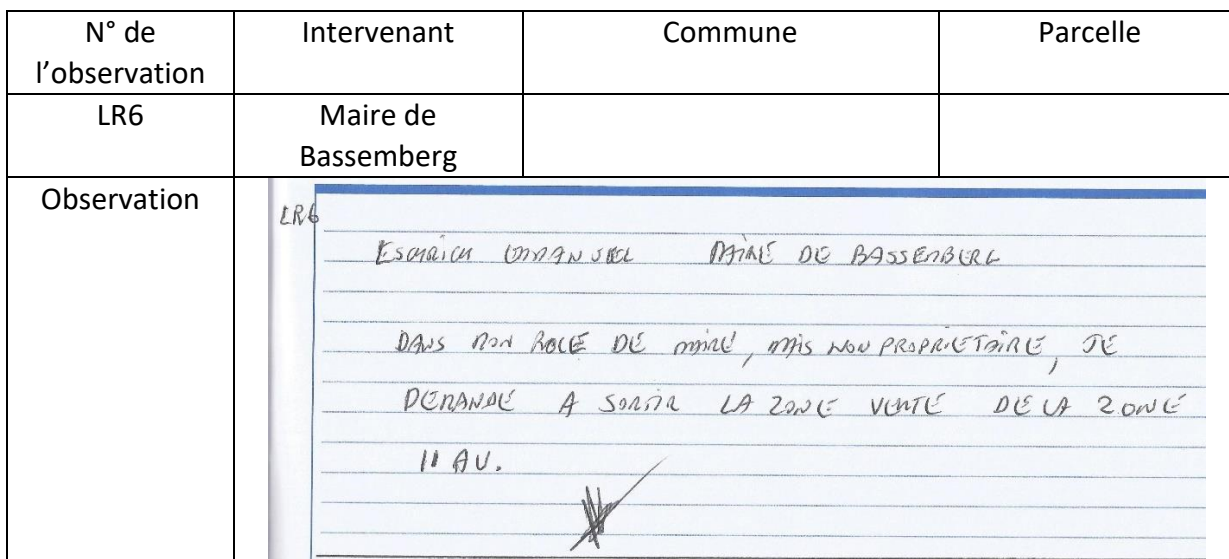 N° de l’observation
Intervenant
Commune
Parcelle
LR6
Maire de Bassemberg
Observation
LR6
EMMANUEL MAIRE DE BASSEMBERG
DANS MON ROLE DE MAIRE, MAIS NON PROPRIETAIRE, JE
DEMANDE A SORTIR LA ZONE VERTE DE LA ZONE
11 AU.